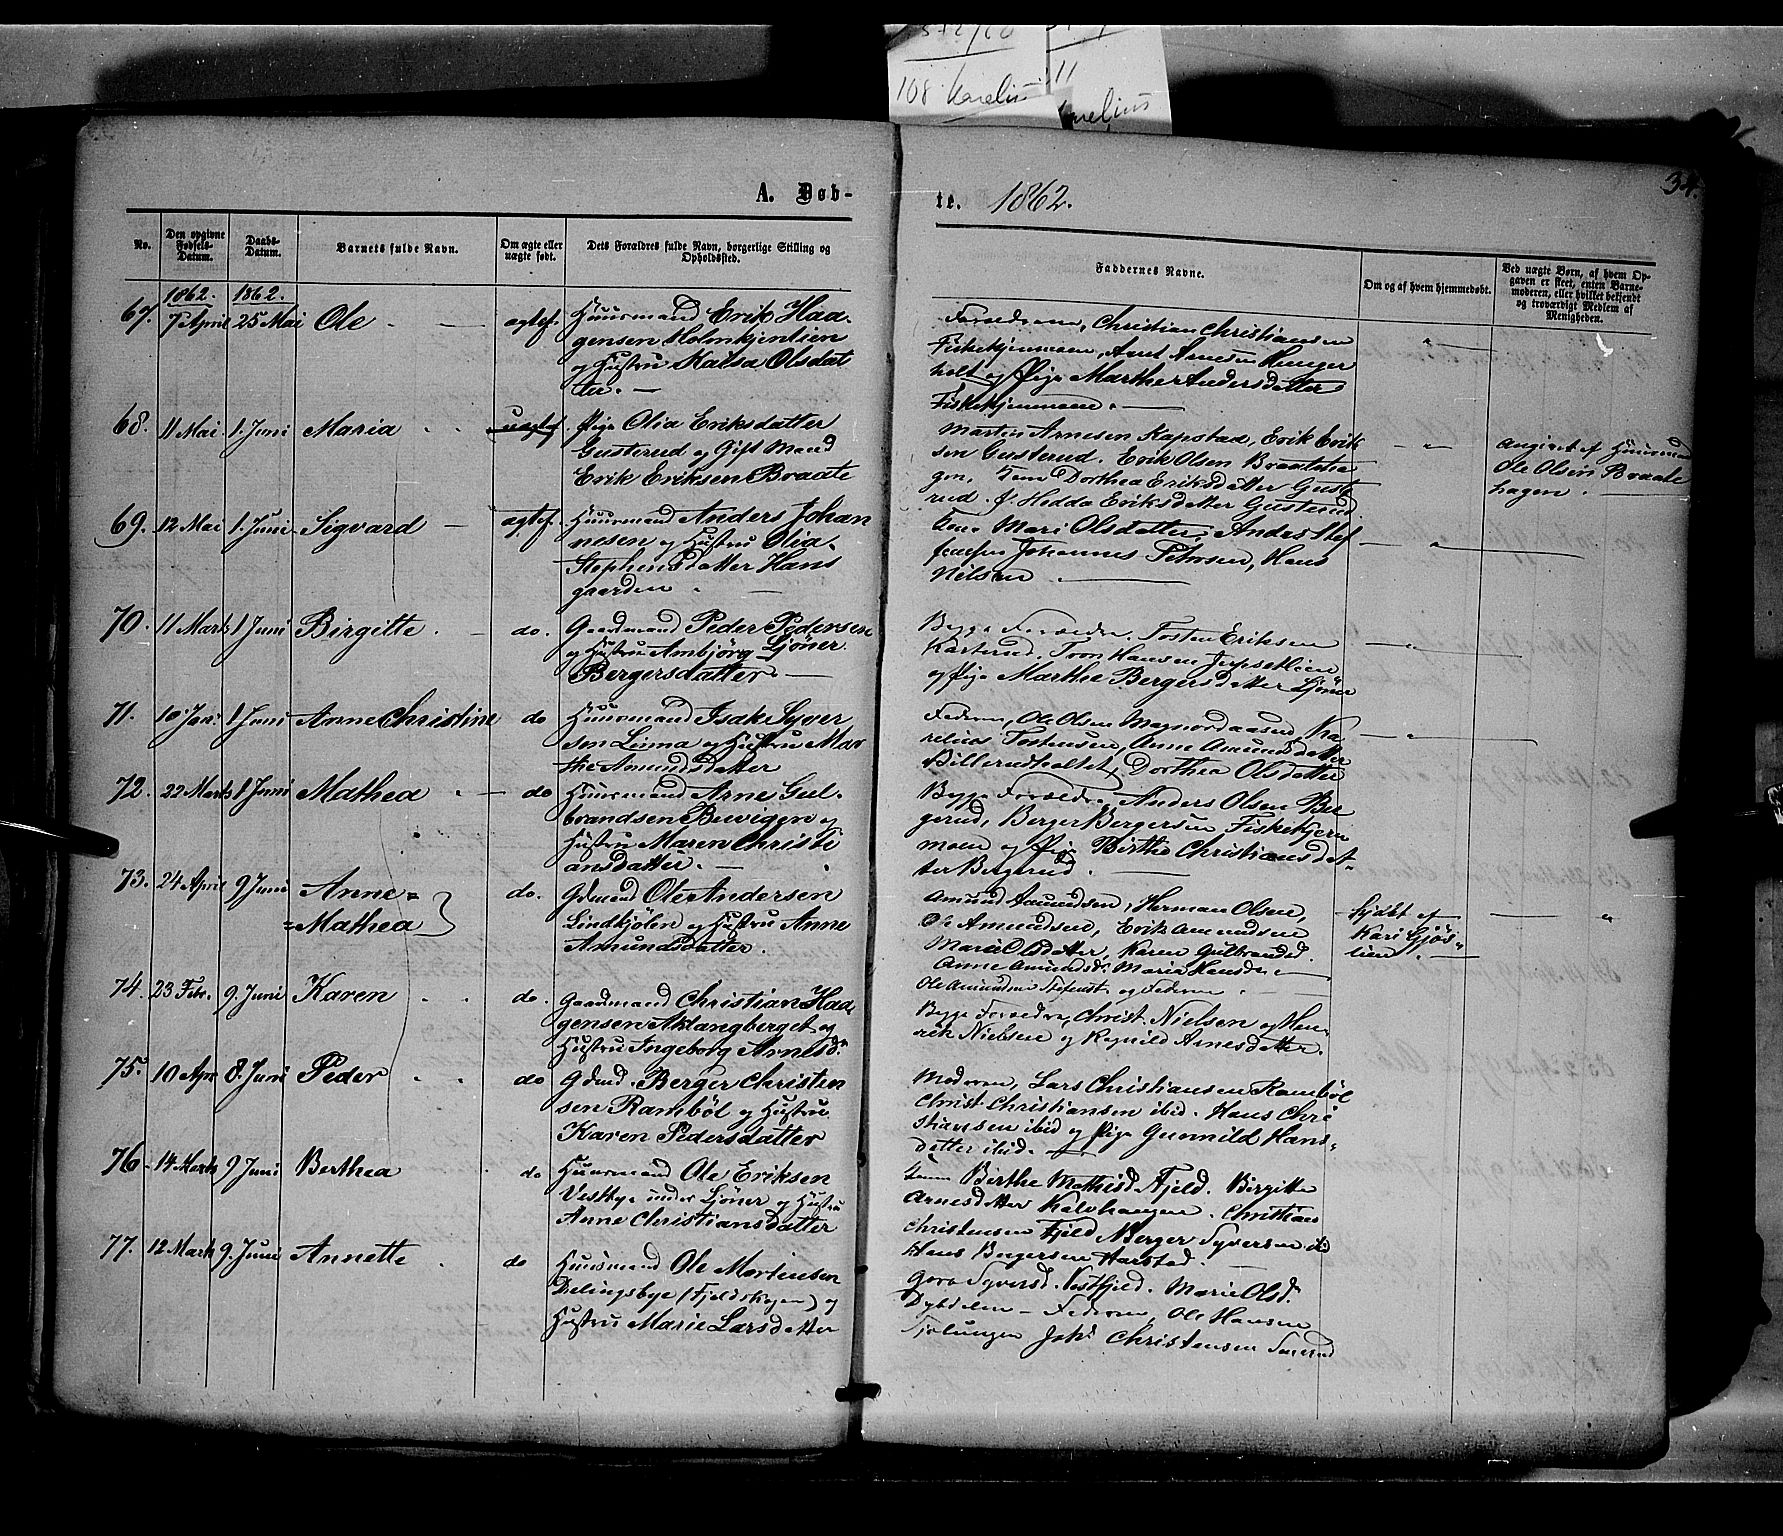 108. Karelius 11
A. Døb-
te. 1862.
34.
No.
Den opgivne Fødsels-Datum.
Daabs-Datum.
Barnets fulde Navn.
Om ægte eller uægte født.
Dets Forældres fulde Navn, borgerlige Stilling og Opholdssted.
Faddernes Navne.
Om og af hvem hjemmedøbt.
Ved uægte Børn, af hvem Opgaven er skeet, enten Barnemoderen, eller hvilket bekjendt og troværdigt Medlem af Menigheden.
1862. 1862.
67. 7 April 25 Mai Ole - - ægtef. Huusmand Erik Haa-
gensen Holmkjentien
og Hustru Kaisa Olsdat
ter. —
Forældrene, Christian Christiansen
Fiskekjernmoen, Arnt Arnesen Hunger
holt og Pige Marthe Andersdatter
Fiskekjernmoen. —
68. 11 Mai 1. Juni Maria uægtef. Pige Olia Eriksdatter
Gusterud og Gift Mand
Erik Eriksen Braate
Martin Arnesen Kapstad, Erik Erik
sen Gusterud. Erik Olsen Braateha
gen, Kone Dorthea Eriksdatter Gust
rud. P. Hedda Eriksdatter Gusterud.
Angivet af Huusmand
Ole Olsen Braate
hagen. —
69. 12 Mai 1. Juni Sigvard — ægtef. Huusmand Anders Johan
nesen og Hustru Olia
Stephensdatter Hans
gaarden
Kone Mari Olsdatter, Anders Stef
fensen Johannes Petersen, Hans
Nilsen —
70. 11 Marts 1 Juni Birgitte. — do. Gaardmand Peder Pedersen
og Hustru Ambjørg Ljøner
Bergersdatter. —
Begge Forældre. Tosten Eriksen
Kasterud. Tron Hansen
og Pige Marthe Bergersdatter Ljøner
71. 10 Jan. 1 Juni Anne Christine do Huusmand Isak Syver
sen Linna og Hustru Mar
the Amundsdatter
Faderen, Ole Olsen Magnordaasen, Ka
relius Tostensen, Anne Amundsdatter
Billerudholtet, Dorthea Olsdatter
72. 22 Marts 1 Juni Mathea - — do Huusmand Arne Gul-
brandsen Buvigen og
Hustru Maren Christi
ansdatter. —
Begge Forældre, Anders Olsen Ber
gerud, Berger Bergersen Fiskekjern
moen og Pige Birthe Christiansdat-
ter Bergerud. —
73. 24 April 9 Juni Anne=
=Mathea do. Gdmand Ole Andersen
Lindkjølen og Hustru Anne
Amundsdatter.
Amund Amundsen, Herman Olsen,
Ole Amundsen, Erik Amundsen
Marie Olsdatter, Karen Gulbrandsd.
Anne Amundsdr. Maria Hansdr. —
Ole Amundsen og Faderen.
Kari Gjøs-
lien. —
74. 23 Febr. 9. Juni Karen do. Gaardmand Christian Haa
gensen Aklangberget og
Hustru Ingeborg Arnesdr.
Begge Forældre, Christ. Nielsen og Hen
rik Nielsen og Ragnild Arnesdatter.
75. 10 Apr 8. Juni Peder do Gdmd. Berger Christen
sen Rambøl og Hustru
Karen Pedersdatter
Moderen, Lars Christiansen Rambøl
Christ. Christiansen ibid. Hans Chri
stiansen ibid og Pige Gunnild Hans-
datter ibid. —
76. 14 Marts 9 Juni Berthea do Huusmand Ole Eriksen
Vestbye under Ljøner og Hustru
Anne Christiansdatter
Kone Birthe Mathisd Fjeld. Birgitte
Arnesdatter Kalvhaugen. Christian
Christensen Fjeld Berger Syversen ibd
Hans Bergersen Harstad. —
77. 12 Marts 9. Juni Annette do Huusmand Ole Mortensen
Delingsbye (Fjeldskogen) og
Hustru Marie Larsdatter
Goro Syversd. Vestfjeld. Marie Olsd.
Dybdelen — Faderen, Ole Hansen
Johs Christensen